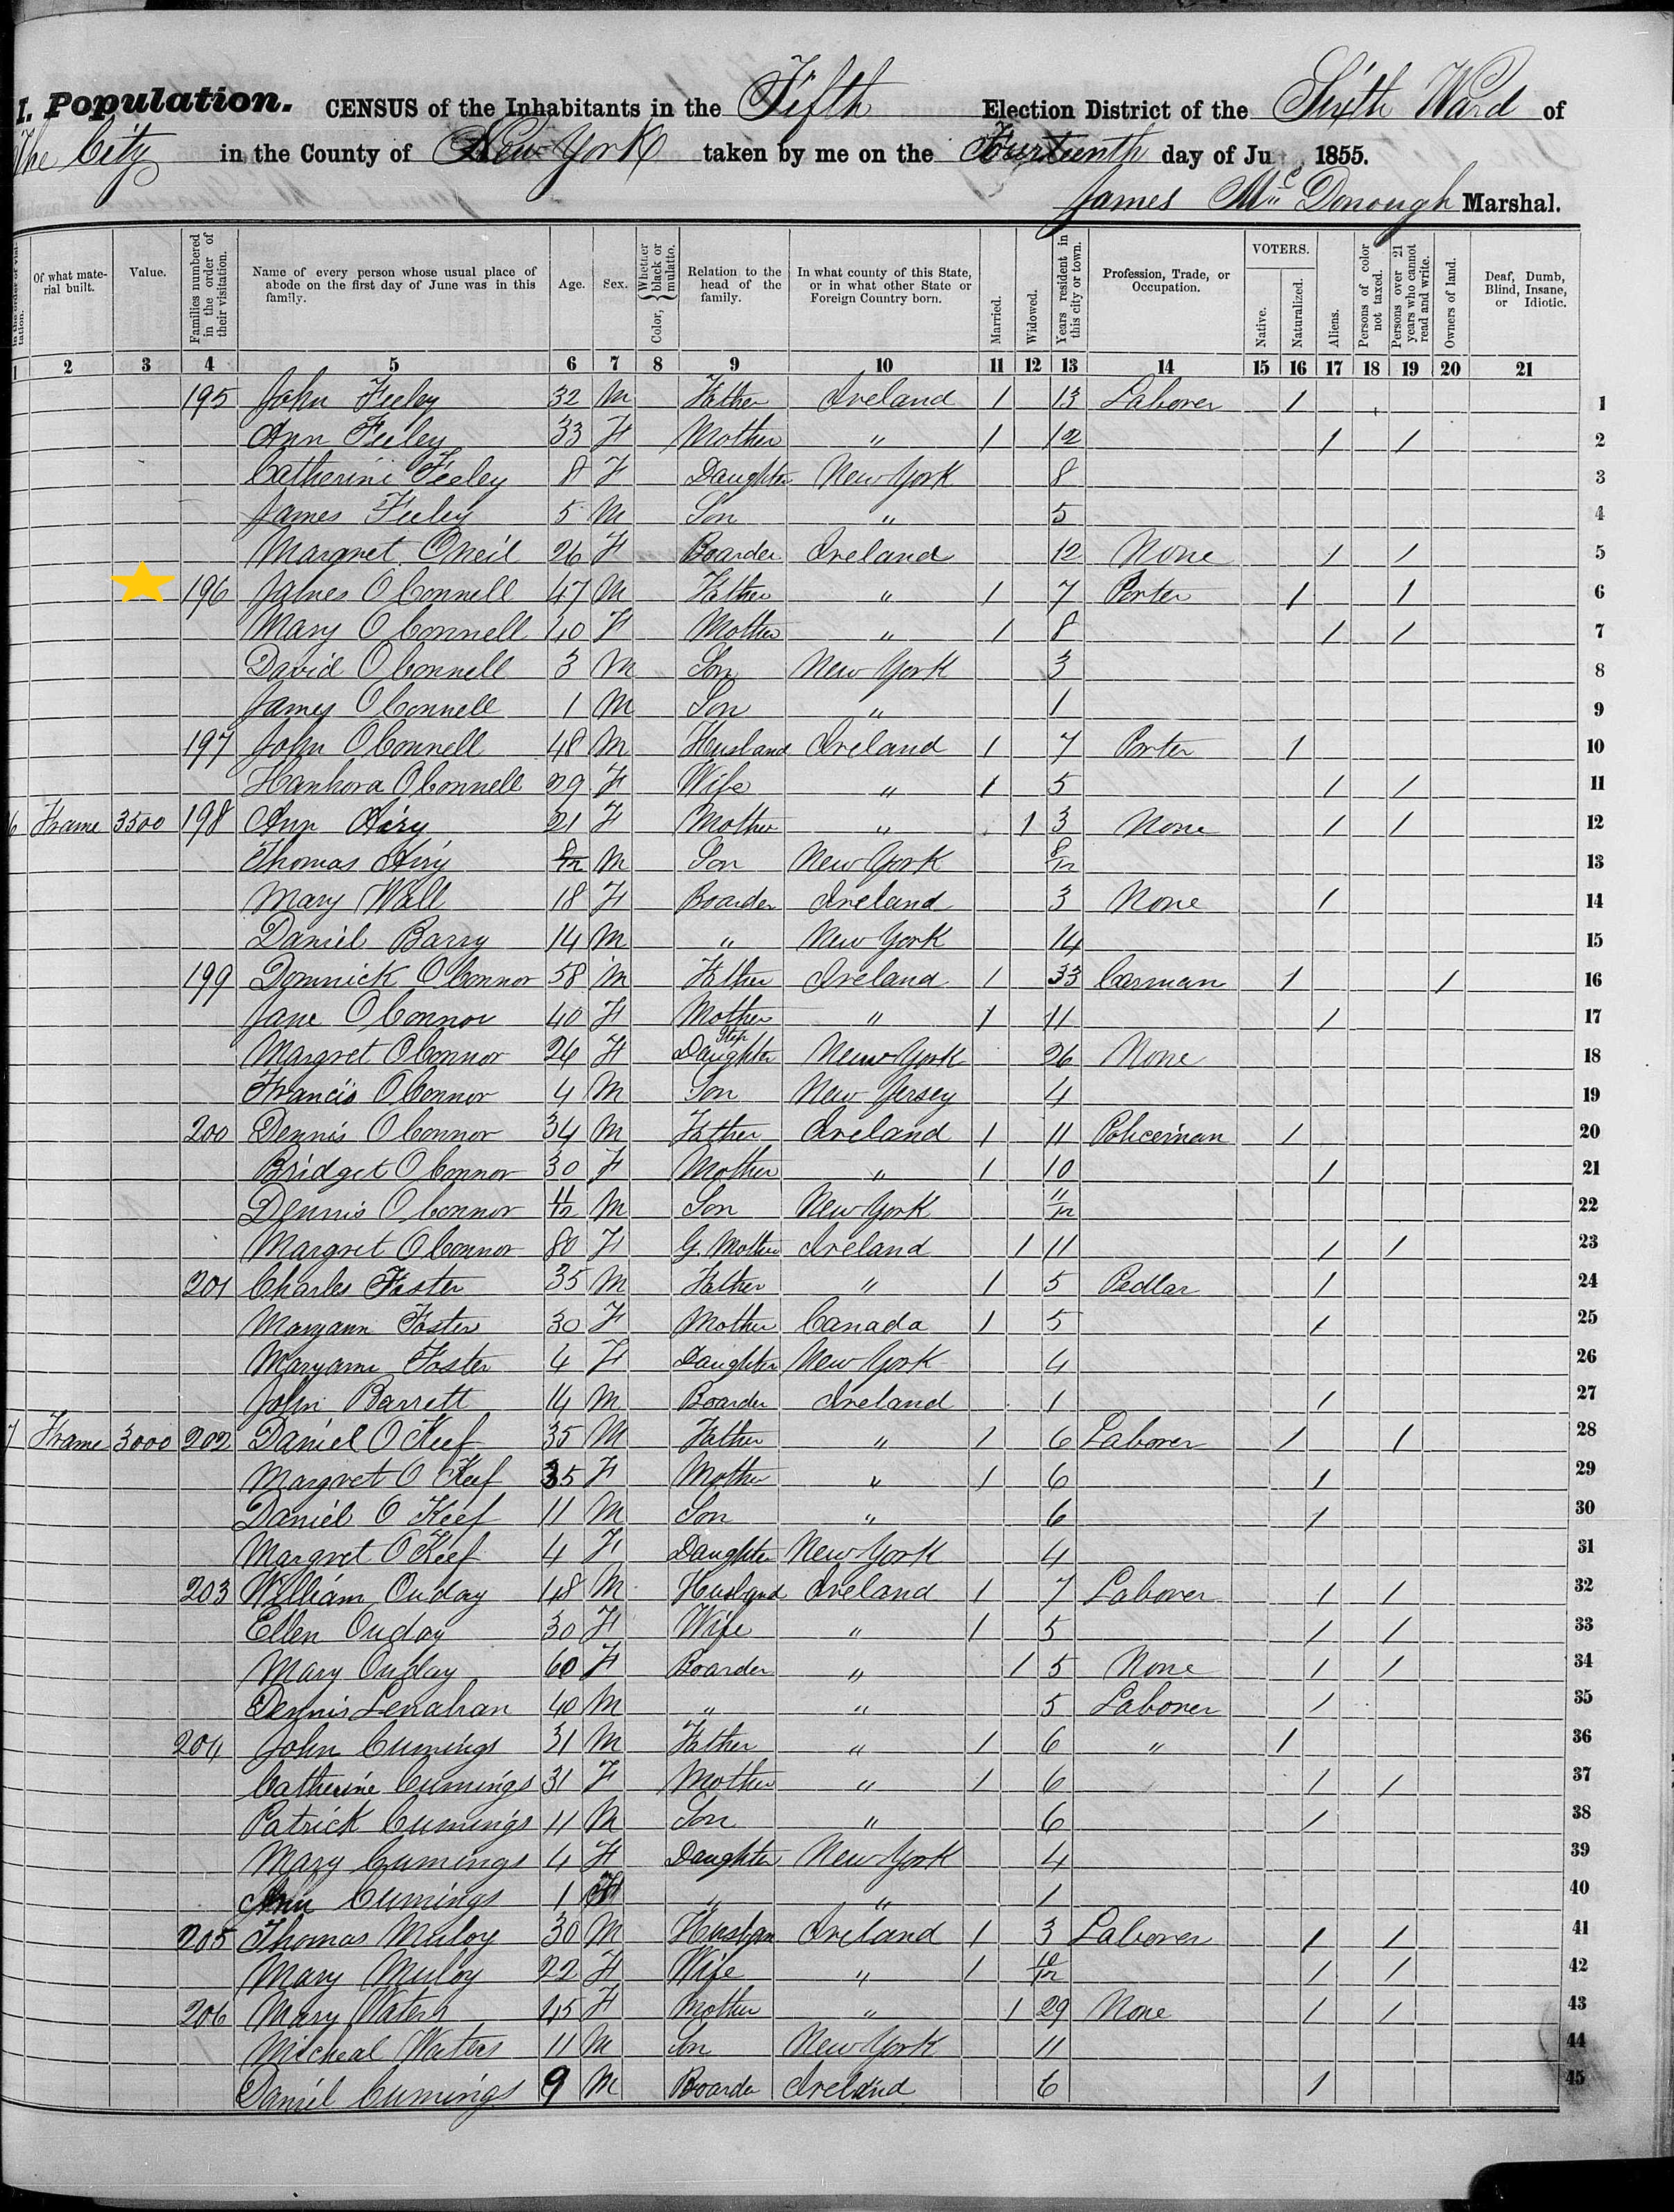 I. Population. CENSUS of the Inhabitants in the Fifth Election District of the Sixth Ward of
The City in the County of New York taken by me on the Fourteenth day of Ju , 1855.
James Mc Donough Marshal.
Of what material built. Value. Families numbered in the order of their visitation. Name of every person whose usual place of abode on the first day of June was in this family. Age. Sex. Color, Whether black or mulatto. Relation to the head of the family. In what county of this State, or in what other State or Foreign Country born. Married. Widowed. Years resident in this city or town. Profession, Trade, or Occupation. VOTERS. Native. Naturalized. Aliens. Persons of color not taxed. Persons over 21 years who cannot read and write. Owners of land. Deaf, Dumb, Blind, Insane, or Idiotic.
1 2 3 4 5 6 7 8 9 10 11 12 13 14 15 16 17 18 19 20 21
195 John Feeley 32 M Father Ireland 1 13 Laborer 1 1
Ann Feeley 33 F Mother " 1 12 1 1 2
Catherine Feeley 8 F Daughter New York 8 3
James Feeley 5 M Son " 5 4
Margret ONeil 26 F Boarder Ireland 12 None 1 1 5
196 James OConnell 47 M Father " 1 7 Porter 1 1 6
Mary OConnell 40 F Mother " 1 8 1 1 7
David OConnell 3 M Son New York 3 8
James OConnell 1 M Son " 1 9
197 John OConnell 48 M Husband Ireland 1 7 Porter 1 10
Hanhora OConnell 29 F Wife " 1 5 1 1 11
6 Frame 3500 198 Ann Airy 21 F Mother " 1 3 None 1 1 12
Thomas Airy 8/12 M Son New York 8/12 13
Mary Wall 18 F Boarder Ireland 3 None 1 14
Daniel Barry 14 M " New York 14 15
199 Domnick OConnor 58 M Father Ireland 1 33 Carman 1 1 16
Jane OConnor 40 F Mother " 1 11 1 17
Margret OConnor 26 F Step Daughter New York 26 None 18
Francis OConnor 4 M Son New Jersey 4 19
200 Dennis OConnor 34 M Father Ireland 1 11 Policeman 1 20
Bridget OConnor 30 F Mother " 1 10 1 21
Dennis OConnor 11/12 M Son New York 11/12 22
Margret OConnor 80 F G. Mother Ireland 1 11 1 1 23
201 Charles Foster 35 M Father " 1 5 Pedlar 1 24
Maryann Foster 30 F Mother Canada 1 5 1 25
Maryann Foster 4 F Daughter New York 4 26
John Barrett 14 M Boarder Ireland 1 1 27
7 Frame 3000 202 Daniel O Keef 35 M Father " 1 6 Laborer 1 1 28
Margret O Keef 35 F Mother " 1 6 1 29
Daniel O Keef 11 M Son " 6 1 30
Margret OKeef 4 F Daughter New York 4 31
203 William Cuday 48 M Husband Ireland 1 7 Laborer 1 1 32
Ellen Cuday 30 F Wife " 1 5 1 1 33
Mary Cuday 60 F Boarder " 1 5 None 1 1 34
Dennis Lenahan 40 M " " 5 Laborer 1 35
204 John Cumings 31 M Father " 1 6 " 1 36
Catherine Cumings 31 F Mother " 1 6 1 1 37
Patrick Cumings 11 M Son " 6 1 38
Mary Cumings 4 F Daughter New York 4 39
Ann Cumings 1 F " " 1 40
205 Thomas Muloy 30 M Husban Ireland 1 3 Laborer 1 1 41
Mary Muloy 22 F Wife " 1 1 1 42
206 Mary Waters 45 F Mother " 1 29 None 1 1 43
Micheal Waters 11 M Son New York 11 44
Daniel Cumings 9 M Boarder Ireland 6 1 45